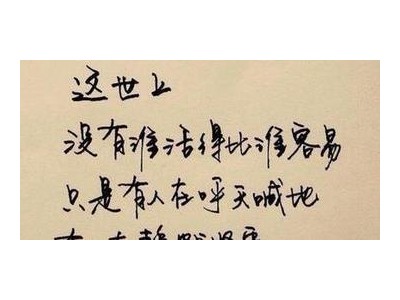 这世上
没有谁活得比谁容易
只是有人在呼天喊地